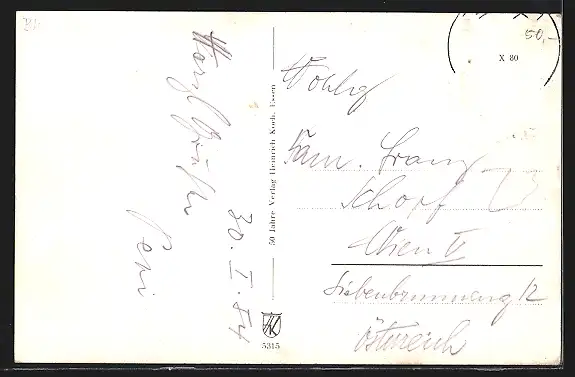 50,-
X 80
Herzl. Grüße
30. I. 54
50 Jahre Verlag Heinrich Koch, Essen
5315
Wohlg
Fam. Franz
Schopf
Wien V
Siebenbrunneng 12
Österreich